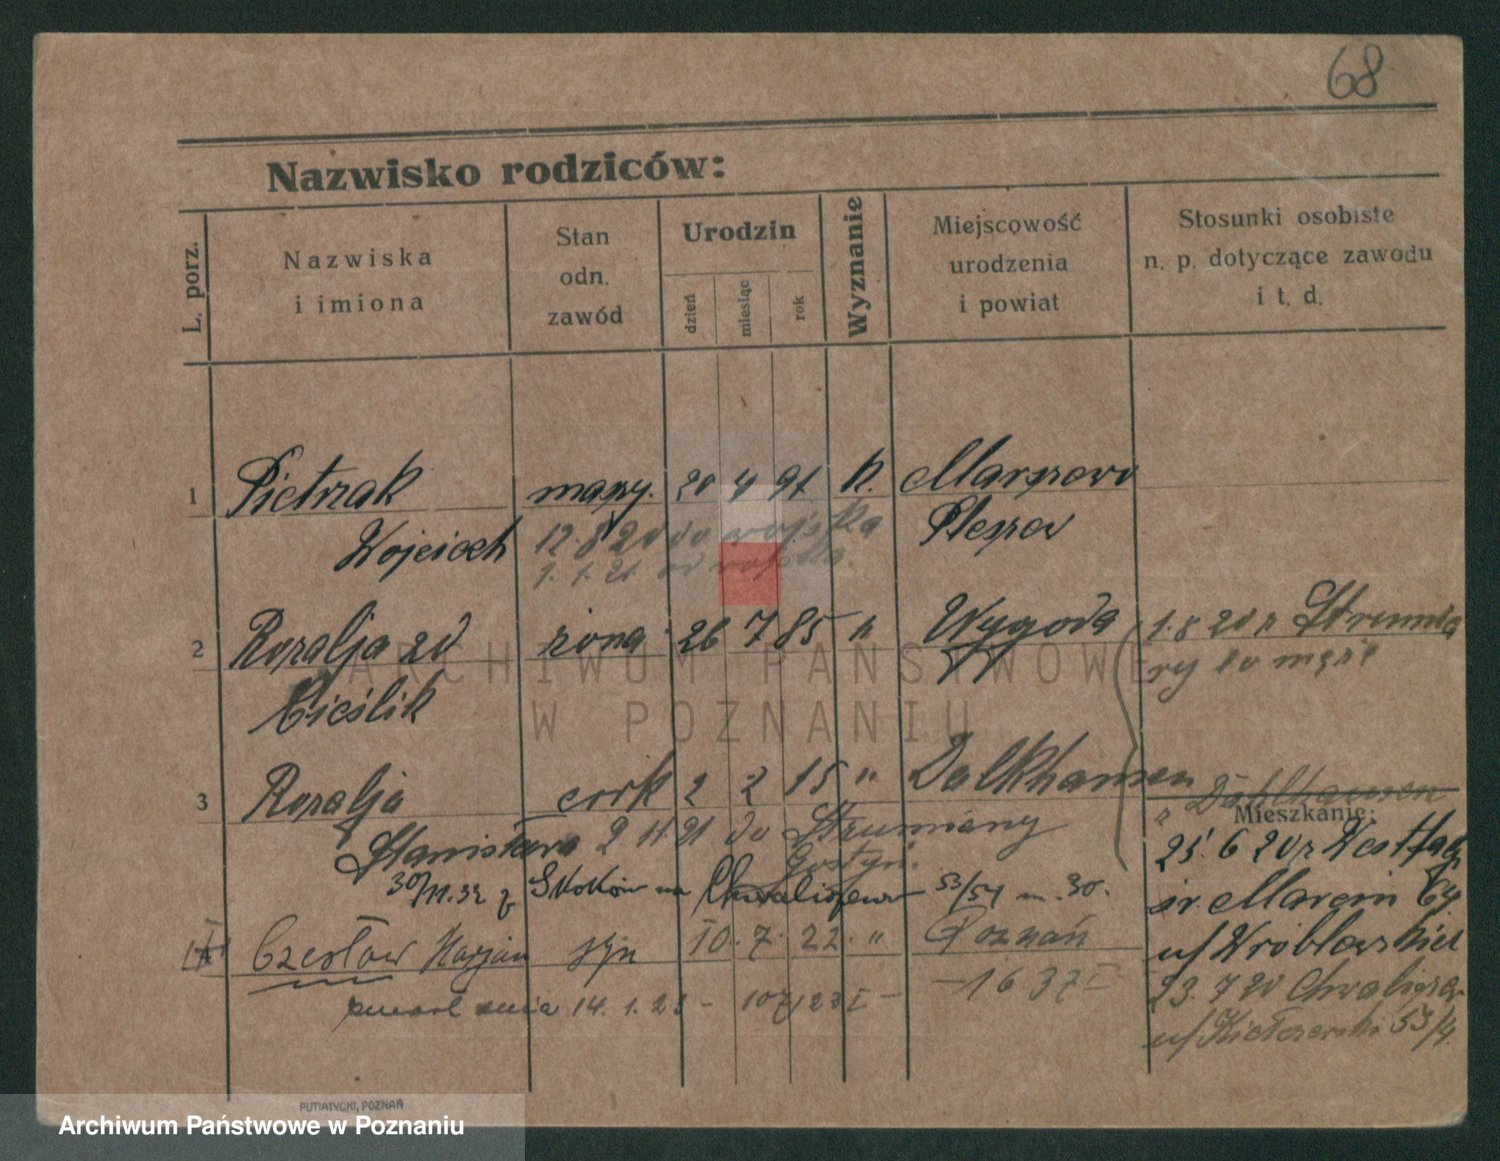 68
Nazwisko rodziców:
L. porz.
Nazwiska
i imiona
Stan
odn.
zawód
Urodzin
dzień
miesiąc
rok
Wyznanie
Miejscowość
urodzenia
i powiat
Stosunki osobiste
n. p. dotyczące zawodu
i t. d.
1 Pietrzak 20 4 91 k. Marszewo
Wojciech 12.8 20 do wojska Pleszew
1.1.21 od wojska.
2 Rozalja zd żona 26 7 85 k Wygoda 1.8 20 z Strumia
ny do męża
Cieślik
3 Rozalja córk 2 2 15 " Dalkhausen
z Dahlhausen
Mieszkanie:
Stanisława 2 11 21 do Strumiany
Gostyń.
25.6 20 z Westfalji
30/11.32 z Skoków na Chwaliszewo 53/54 m. 30.
św. Marcin 64
4 Czesław Marjan syn 10. 7. 22. " Poznań
u/ Wróblewskiej
zmarł dnia 14. 1. 23 - 107/23 I - - 1637 I
23. 7 20 Chwaliszew
53/4.
PUTIATYCKI, POZNAŃ
ARCHIWUM PAŃSTWOWE
W POZNANIU
Archiwum Państwowe w Poznaniu